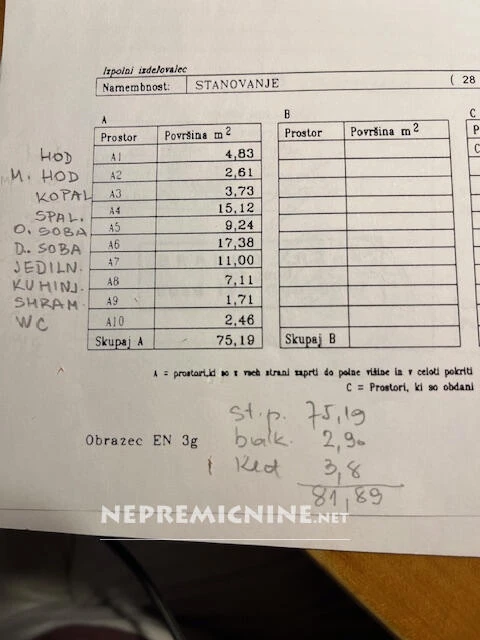 Izpolni izdelovalec
Namembnost: STANOVANJE ( 28
A B C
Prostor Površina m² Prostor Površina m² P
HOD A1 4,83 C
M. HOD A2 2,61
KOPAL A3 3,73
SPAL. A4 15,12
O. SOBA A5 9,24
D. SOBA A6 17,38
JEDILN. A7 11,00
KUHINJ. A8 7,11
SHRAM. A9 1,71
WC A10 2,46
Skupaj A 75,19 Skupaj B
A = prostori,ki so z vseh strani zaprti do polne višine in v celoti pokriti
C = Prostori, ki so obdani
st.p. 75,19
Obrazec EN 3g bak. 2,90
Klet 3,8
81,89
NEPREMICNINE.NET